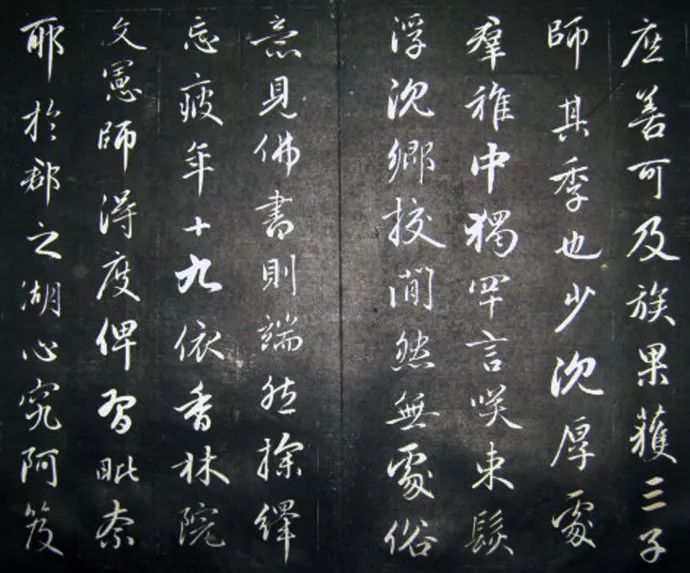 庶善可及族果獲三子
師其季也少沉厚處
羣稚中獨罕言咲束髮
浮沉鄉校閒然無處俗
意見佛書則端然探繹
忘疲年十九依香林院
文憲師得度俾習毗奈
耶於郡之湖心究阿笈